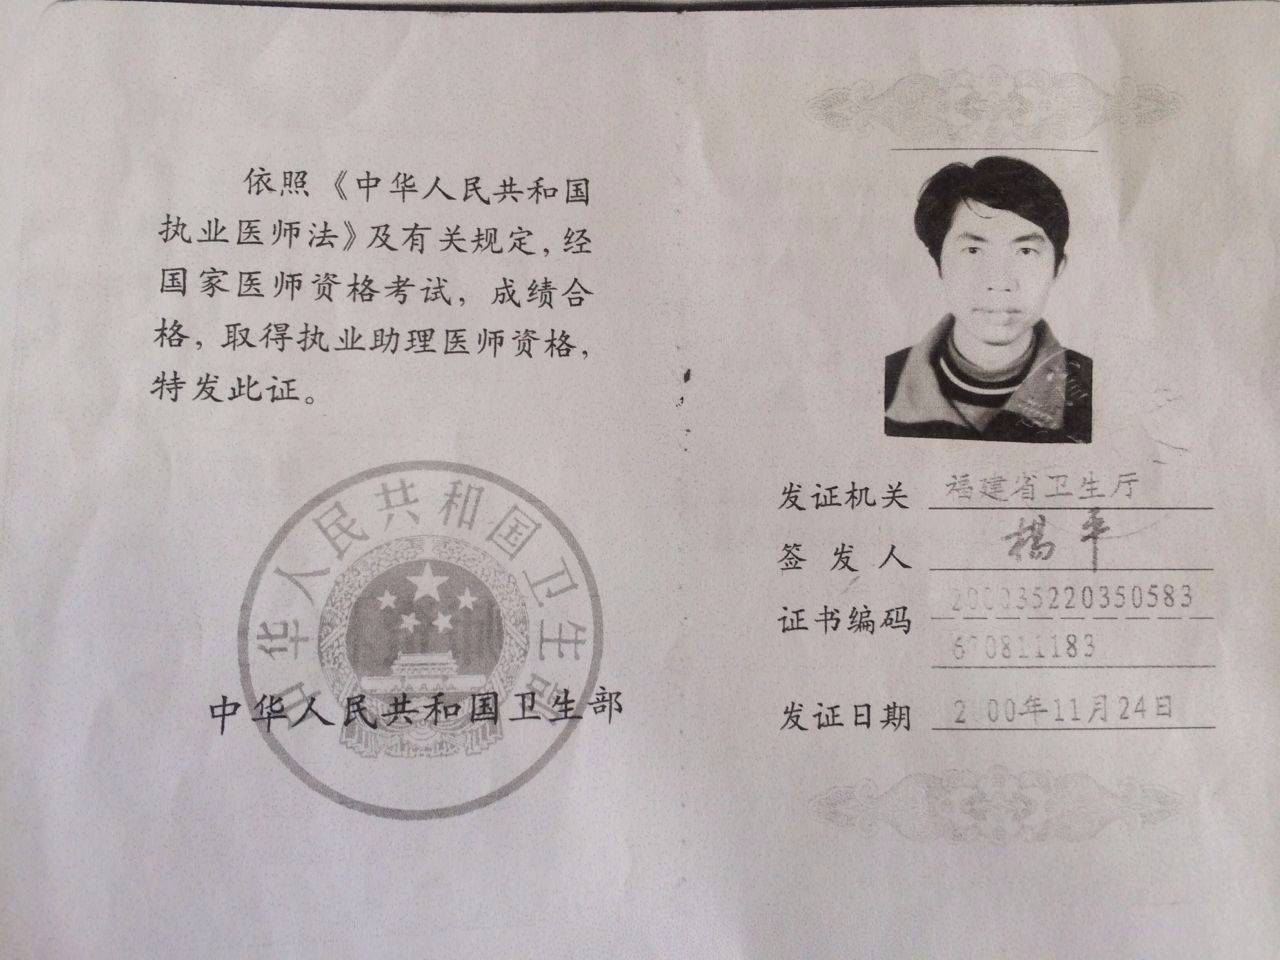 依照《中华人民共和国
执业医师法》及有关规定,经
国家医师资格考试,成绩合
格,取得执业助理医师资格,
特发此证。
中华人民共和国卫生部
中华人民共和国卫生部
发证机关 福建省卫生厅
签发人 杨平
证书编码 200035220350583
670811183
发证日期 2000年11月24日